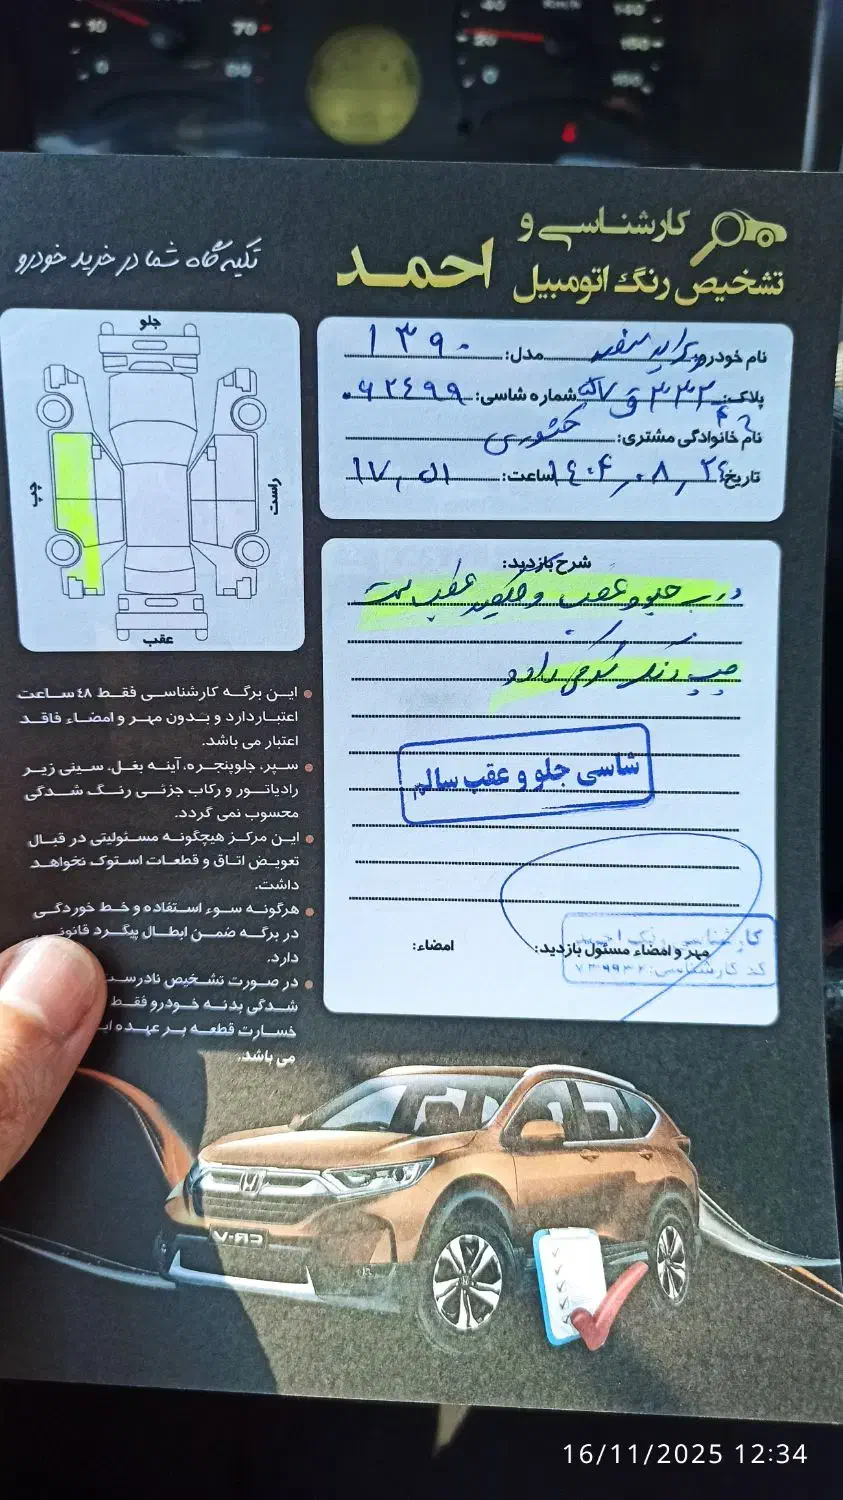 کارشناسی و
تشخیص رنگ اتومبیل احمد
تکیه گاه شما در خرید خودرو
نام خودرو: پراید سفید مدل: ۱۳۹۰
پلاک: ۳۳۲ ق شماره شاسی: ۰۶۲۴۹۹
نام خانوادگی مشتری: کشوری
تاریخ: ۱۴۰۴٫۰۸٫۲۴ ساعت: ۱۷٫۵۱
شرح بازدید:
درب جلو و عقب و گلگیر عقب سمت
چپ رنگ دارد
شاسی جلو و عقب سالم
مهر و امضاء مسئول بازدید: امضاء:
کارشناسی رنگ احمد
کد کارشناسی:
جلو
چپ
راست
عقب
این برگه کارشناسی فقط ٤٨ ساعت
اعتبار دارد و بدون مهر و امضاء فاقد
اعتبار می باشد.
سپر، جلوپنجره، آینه بغل، سینی زیر
رادیاتور و رکاب جزئی رنگ شدگی
محسوب نمی گردد.
این مرکز هیچگونه مسئولیتی در قبال
تعویض اتاق و قطعات استوک نخواهد
داشت.
هرگونه سوء استفاده و خط خوردگی
در برگه ضمن ابطال پیگرد قانونی
دارد.
در صورت تشخیص نادرست
شدگی بدنه خودرو فقط
خسارت قطعه بر عهده
می باشد.
CR-V
16/11/2025 12:34